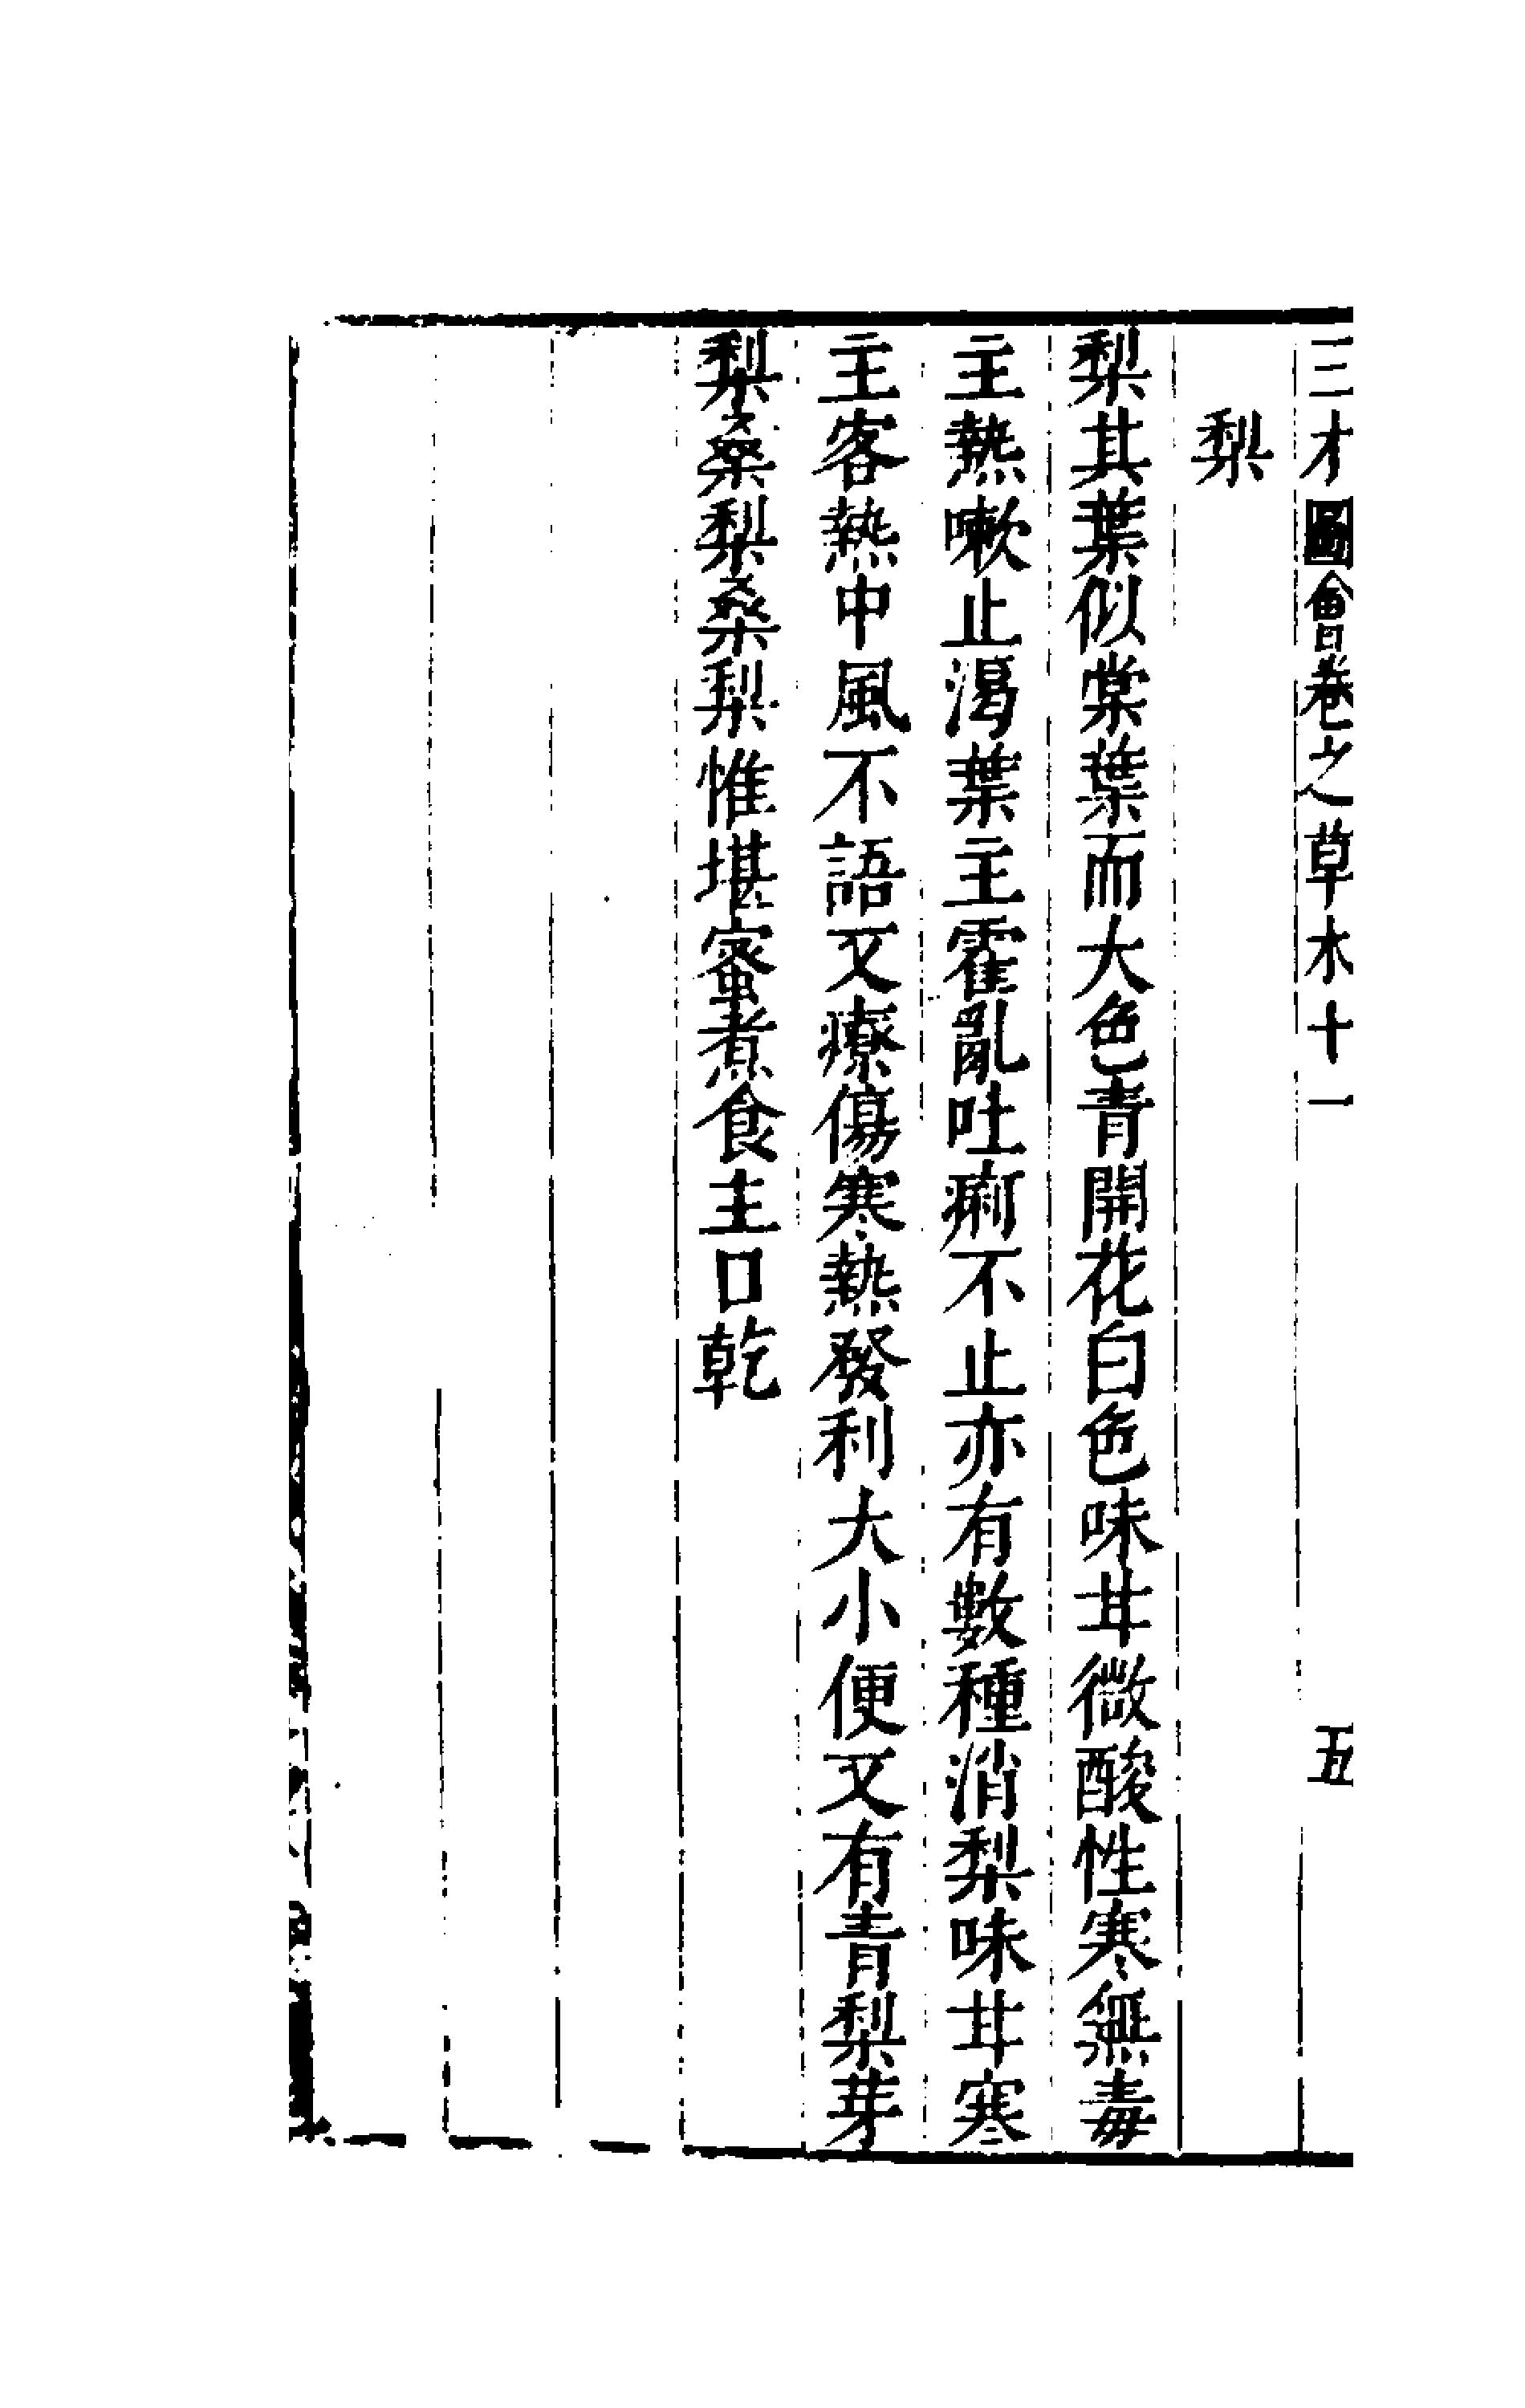 三才圖會卷之草木十一 五
梨
梨其葉似棠葉而大色青開花白色味甘微酸性寒無毒
主熱嗽止渴葉主霍亂吐痢不止亦有數種消梨味甘寒
主客熱中風不語又療傷寒熱發利大小便又有青梨芽
梨桑梨桑梨惟堪蜜煮食主口乾